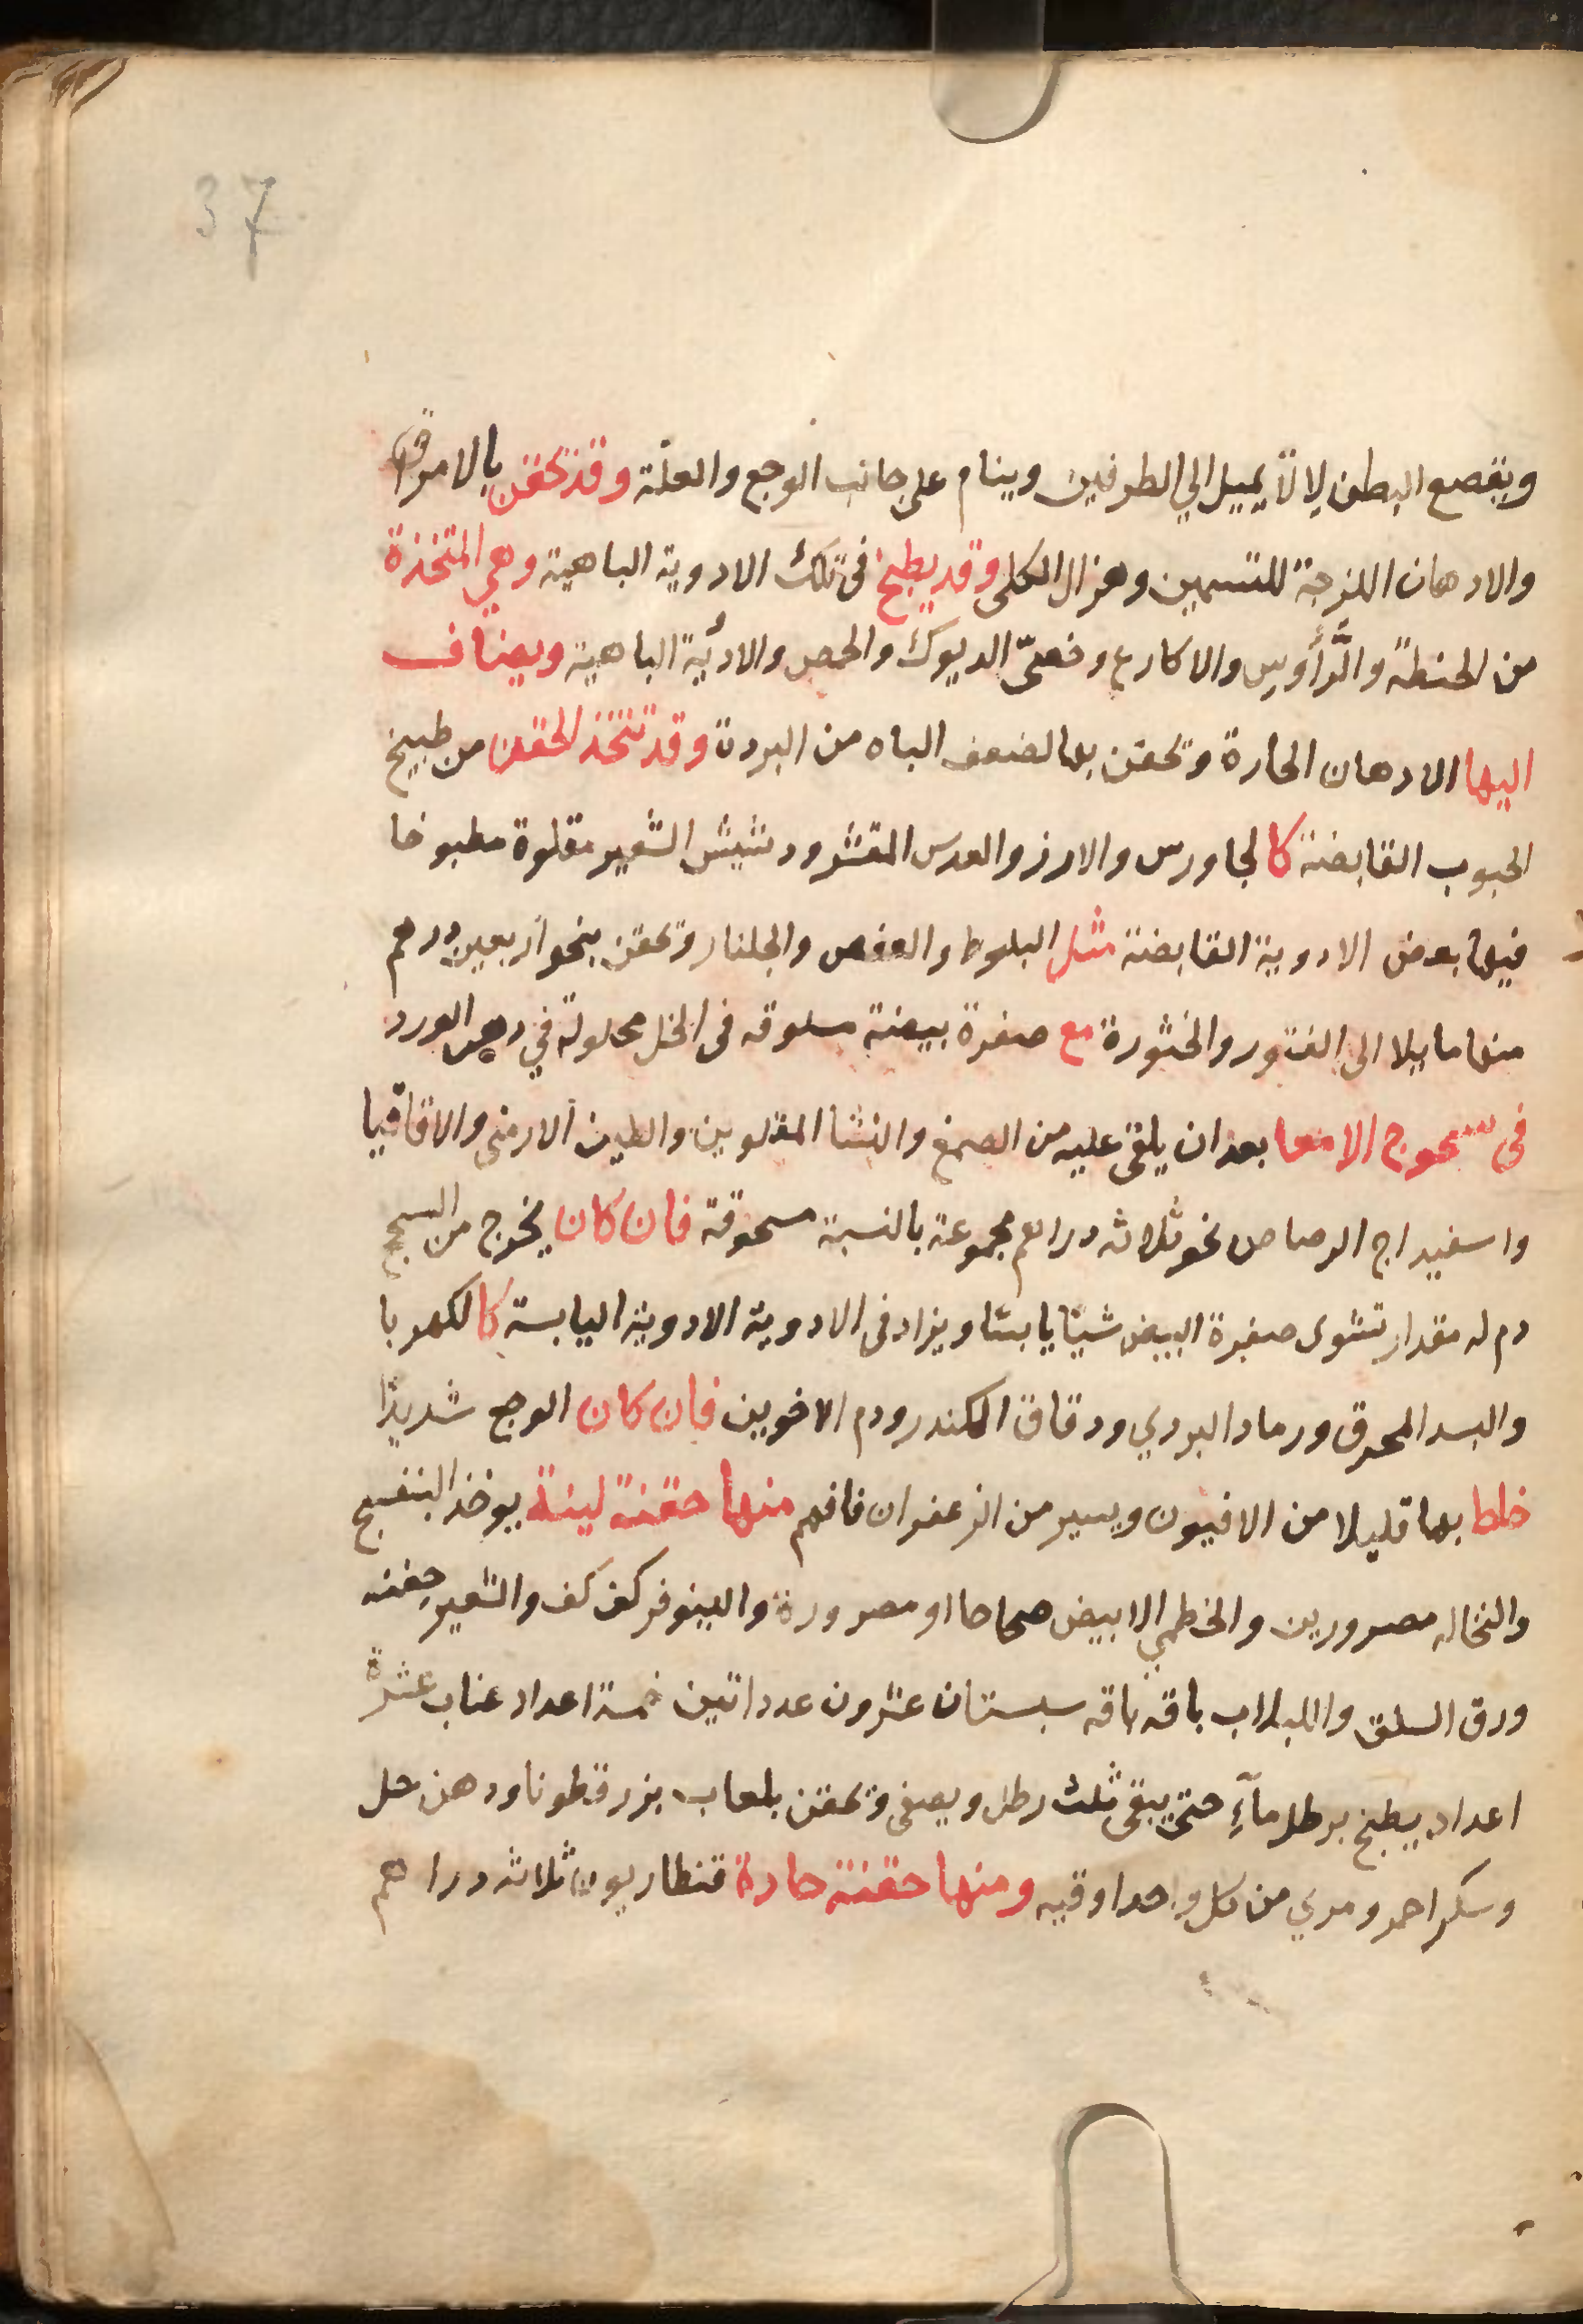 37
ويقصع البطن لالا يميل الي الطرفين وينام على جانب الوجع والعلة وقد تحقن بالامراق
والادهان اللزجة للتسمين وهزال الكلى وقد يطبخ فى تلك الادوية الباهية وهي المتخذة
من الحنطة والرأوس والاكارع وخصىّ الديوك والحمص والادئية الباهية ويضاف
اليها الادهان الحارة وتحقن بها لضعف الباه من البردة وقد تتخذ الحقن من طبيخ
الحبوب القابضة كالجاورس والارز والعدس المقشر ودشيش الشعير مقلوة مطبوخا
فيها بعض الادوية القابضة مثل البلوط والعفص والجلنار وتحقن بنحو اربعين درهم
منها مايلا الى الفتور والخثورة مع صفرة بيضة مسلوقه فى الخل محلولة في دهن الورد
فى سحوج الامعا بعد ان يلقى عليه من الصمغ والنشا المقلوين والطين الارمنى والاقاقيا
واسفيداج الرصاص نحو ثلاثه دراهم مجموعة بالنسبة مسحوقة فان كان يخرج من السحج
دم له مقدار تشوى صفرة البيض شيئا يابسا ويزاد فى الادوية الادوية اليابسة كالكهربا
والبسد المحرق ورماد البردي ودقاق الكندر ودم الاخوين فان كان الوجع شديدا
خلط بها قليلا من الافيون ويسير من الزعفران فافهم منها حقنة لينة يوخذ البنفسج
والنخاله مصرورين والخطمي الابيض صحاحا او مصرورة والينوفر كف كف والشعير حفنه
ورق السلق واللبلاب باقه باقه سبستان عشرون عددا تين خمسة اعداد عناب عشرة
اعداد يطبخ برطل مآءِ حتى يبقى ثلث رطل ويصفى وتحقن بلعاب بزرقطونا ودهن حل
وسكر احمر ومري من كل واحد اوقيه ومنها حقنة حادة قنطاريون ثلاثه دراهم